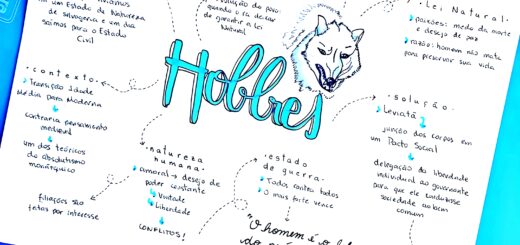 em um Estado de Natureza
de selvageria e um dia
saímos para o Estado
Civil
quando o
de garantir a lei
Natural
Lei Natural
paixões: medo da morte
e desejo de paz
razão: homem não mata
para preservar sua vida
Hobbes
contexto
Transição Idade
Média para Moderna
contraria pensamento
medieval
um dos teóricos
do absolutismo
monárquico
filiações são
feitas por interesse
natureza
humana
amoral → desejo de
poder constante
Vontade
Liberdade
CONFLITOS!
estado
de guerra
Todos contra todos
O mais forte vence
"O homem é o
do
solução
Leviatã
junção dos corpos em
um Pacto Social
delegação da liberdade
individual ao governante
para que ele conduzisse
sociedade ao bem
comum